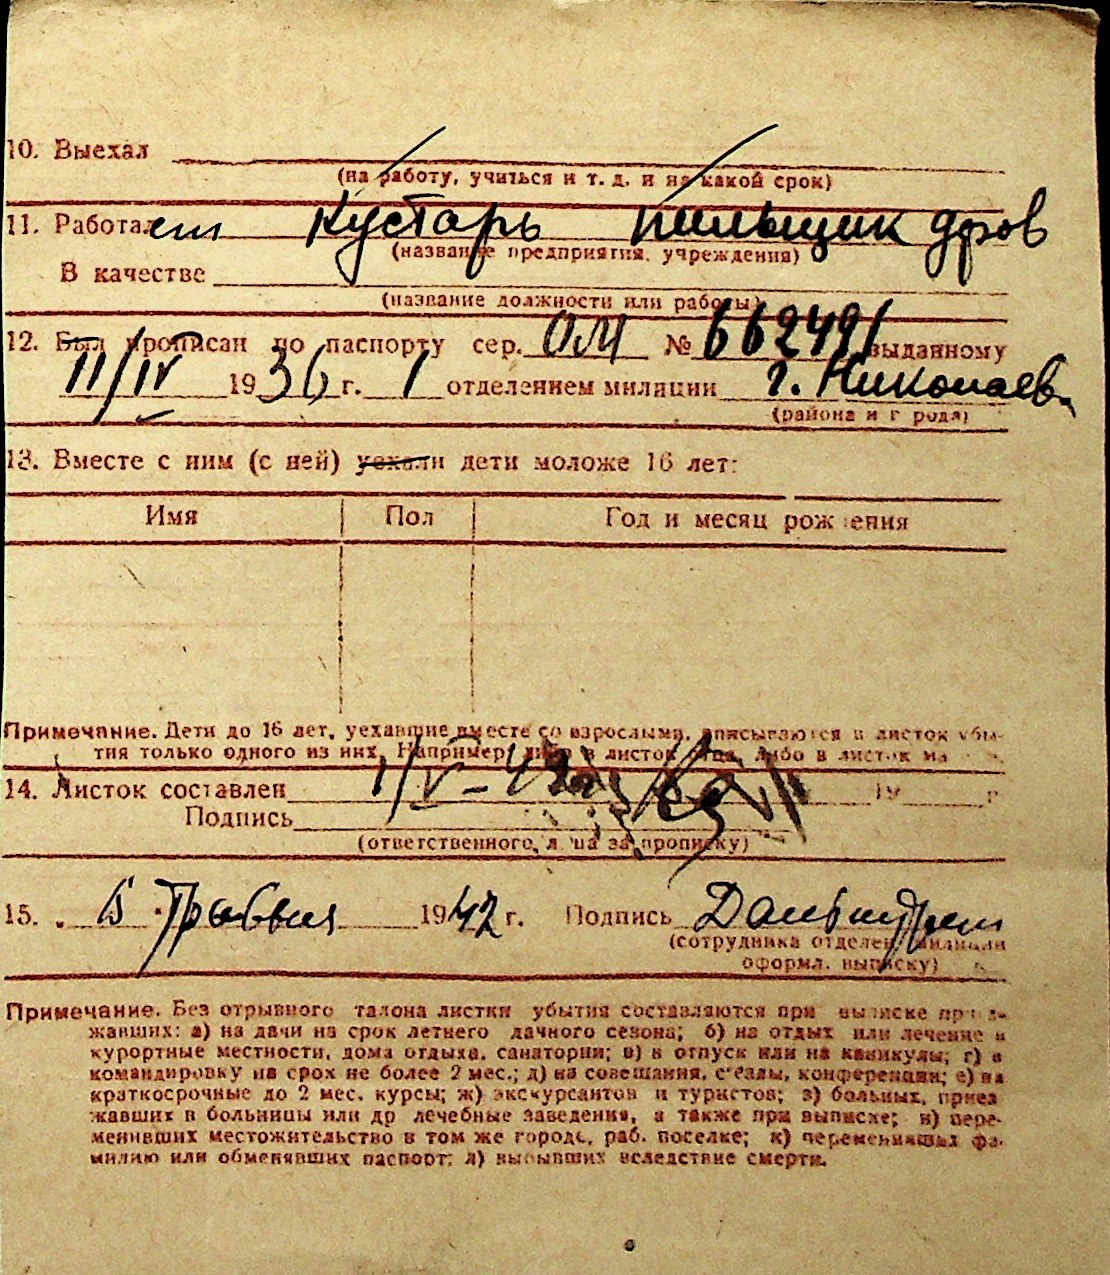 10. Выехал
(на работу, учиться и т. д. и на какой срок)
11. Работает Кустарь пильщик дров
(название предприятия, учреждения)
В качестве
(название должности или работы)
12. Был прописан по паспорту сер. ОМ № 662491 выданному
11/IV 1936 г. 1 отделением милиции г. Николаев
(района и города)
13. Вместе с ним (с ней) уехали дети моложе 16 лет:
Имя Пол Год и месяц рождения
Примечание. Дети до 16 лет, уехавшие вместе со взрослыми, вписываются в листок убы-
тия только одного из них. Например: либо в листок отца, либо в листок ма
14. Листок составлен 1/V-42 19 г
Подпись
(ответственного лица за прописку)
15. 5 Травня 1942 г. Подпись
(сотрудника отделен. милиции
оформл. выписку)
Примечание. Без отрывного талона листки убытия составляются при выписке приез-
жавших: а) на дачи на срок летнего дачного сезона; б) на отдых или лечение в
курортные местности, дома отдыха, санатории; в) в отпуск или на каникулы; г) в
командировку на срок не более 2 мес.; д) на совещания, съезды, конференции; е) на
краткосрочные до 2 мес. курсы; ж) экскурсантов и туристов; з) больных, приез
жавших в больницы или др лечебные заведения, а также при выписке; и) пере-
менивших местожительство в том же городе, раб. поселке; к) переменивших фа-
милию или обменявших паспорт; л) выбывших вследствие смерти.